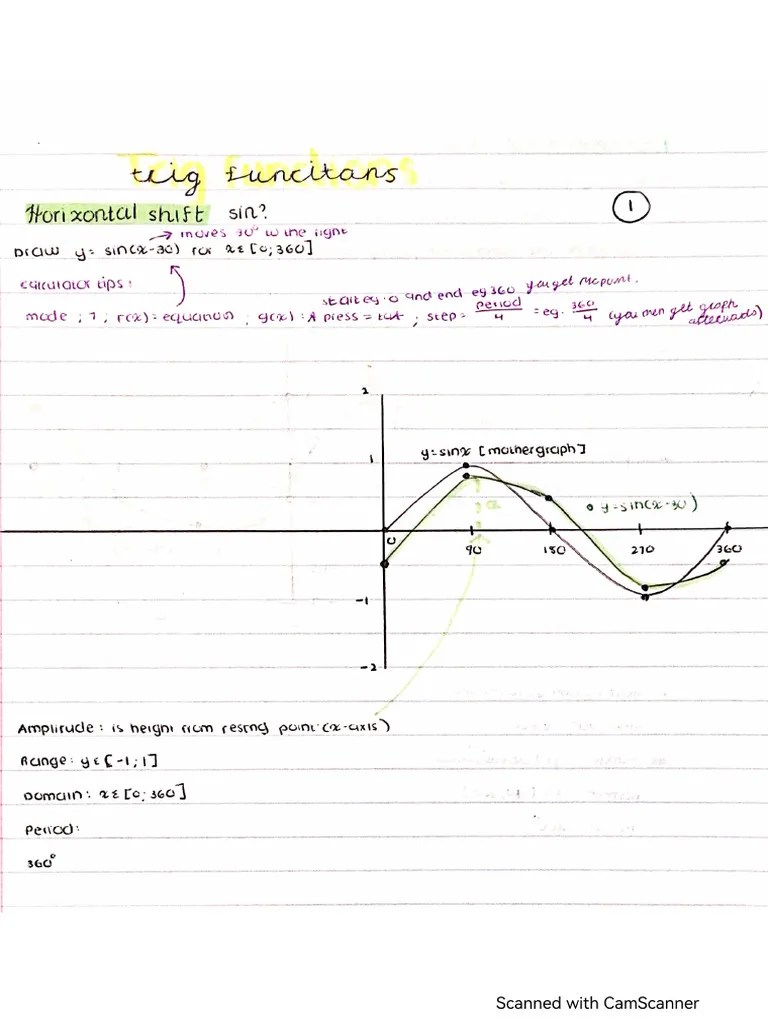 trig funcitans
Horizontal shift sin?
1
→ moves 30° to the right
Draw y = sin(x-30) for x ε [0; 360]
calculator tips:
start eg. 0 and end eg 360 you get midpoint.
mode ; 7 ; f(x): equation ; g(x): press = ; step = period/4 = eg. 360/4 (you then get graph afterwards)
2
y=sinx [mother graph]
1
y=sin(x-30)
0
90 180 270 360
-1
-2
Amplitude: is height from resting point (x-axis)
Range: y ε [-1; 1]
Domain: x ε [0; 360]
Period:
360°
Scanned with CamScanner